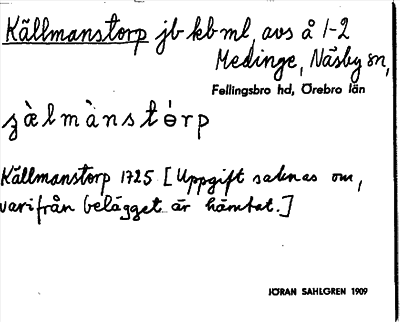 Källmanstorp jb kb ml, avs å 1-2
Medinge, Näsby sn,
Fellingsbro hd, Örebro län
Källmanstorp 1725 [Uppgift saknas om,
varifrån belägget är hämtat.]
JÖRAN SAHLGREN 1909